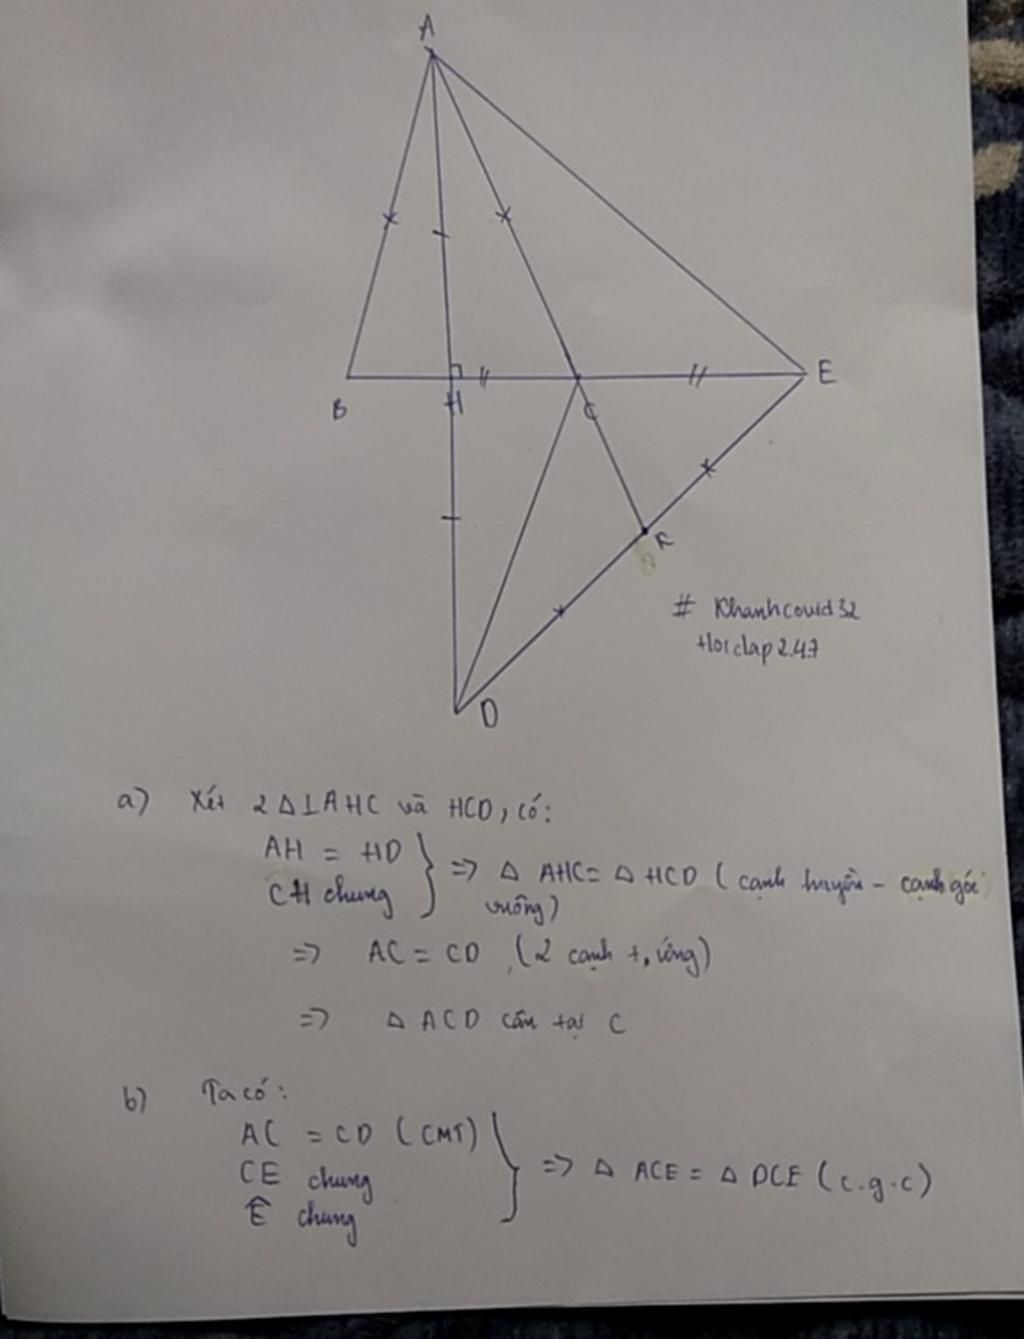 A
B
H
C
E
K
D
# Khanhcovid32
+lorclap247
a) Xét 2 Δ⊥AHC và HCD, có:
AH = HD
CH chung
} => Δ AHC = Δ HCD ( cạnh huyền - cạnh góc
vuông)
=> AC = CD (2 cạnh t, ứng)
=> Δ ACD cân tại C
b) Ta có:
AC = CD (CMT)
CE chung
Ê chung
} => Δ ACE = Δ DCE (c.g.c)